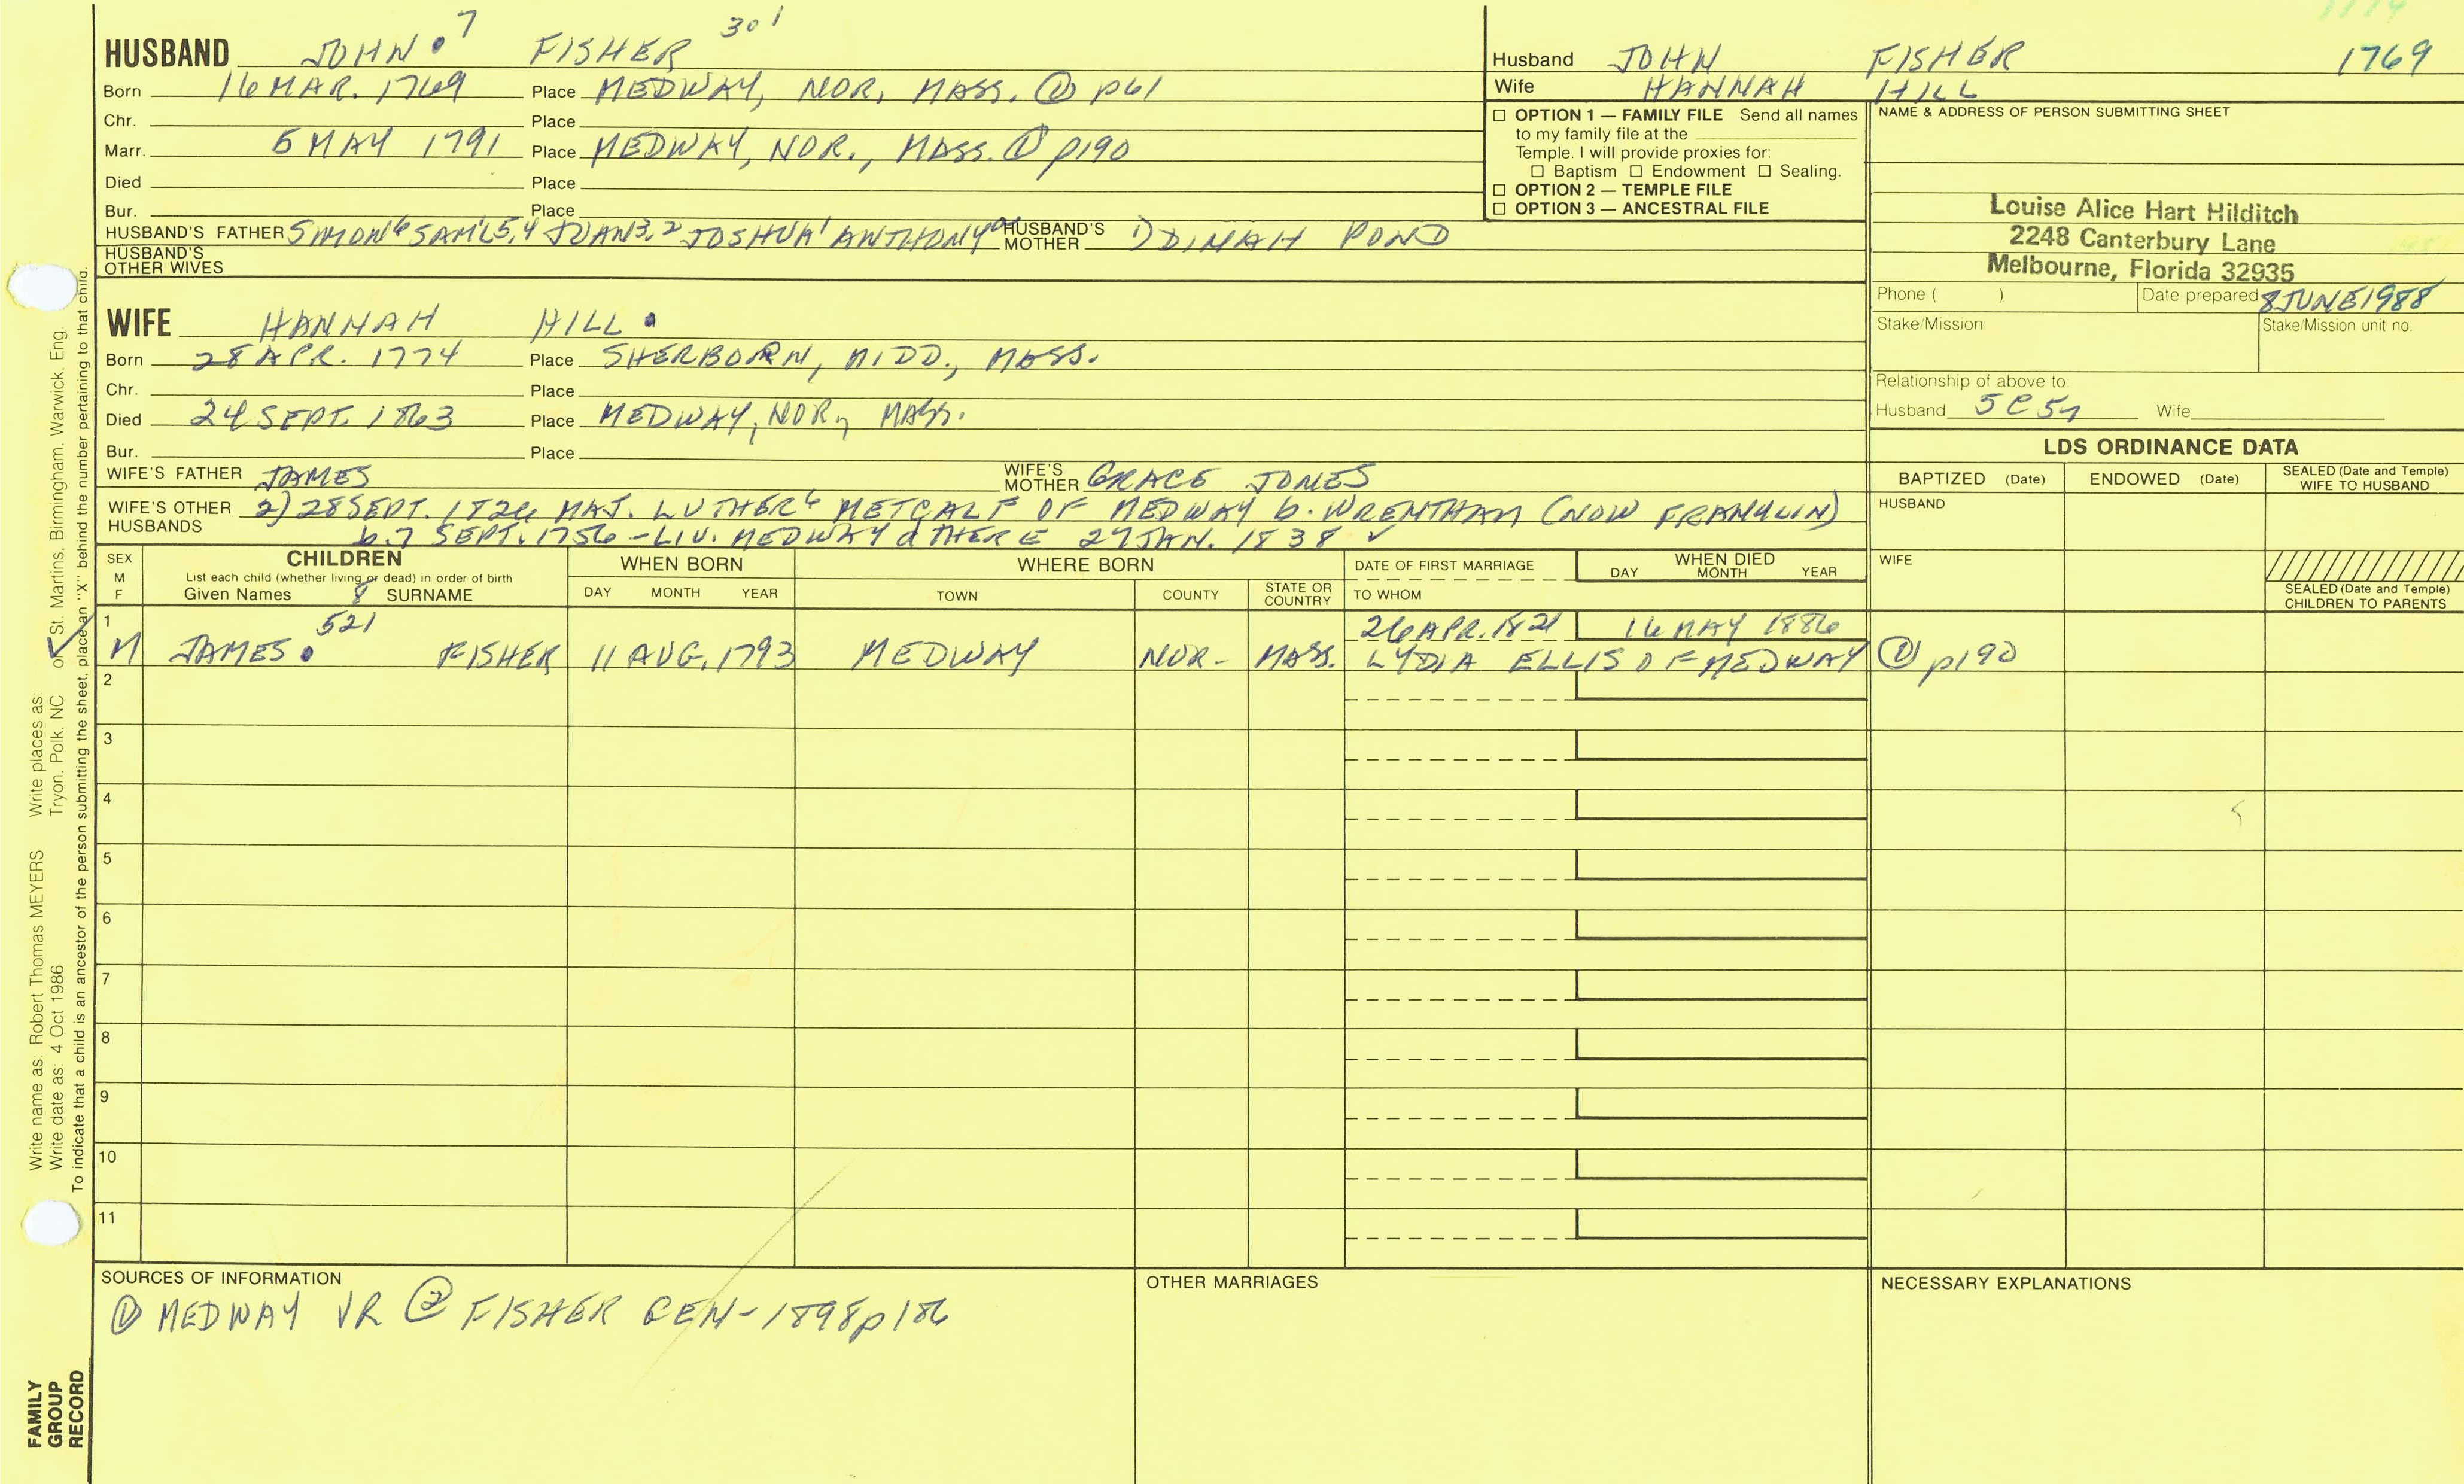 1774
HUSBAND JOHN 7 FISHER 301
Born 16 MAR. 1769 Place MEDWAY, NOR, MASS. ① p61
Chr. Place
Marr. 5 MAY 1791 Place MEDWAY, NOR., MASS. ① p190
Died Place
Bur. Place
HUSBAND'S FATHER SIMON 6 SAM'L 5,4 3,2 JOSHUA 1 ANTHONY HUSBAND'S MOTHER 1) DINAH POND
HUSBAND'S OTHER WIVES
Husband JOHN FISHER 1769
Wife HANNAH HILL
☐ OPTION 1 — FAMILY FILE Send all names
to my family file at the
Temple. I will provide proxies for:
☐ Baptism ☐ Endowment ☐ Sealing.
☐ OPTION 2 — TEMPLE FILE
☐ OPTION 3 — ANCESTRAL FILE
NAME & ADDRESS OF PERSON SUBMITTING SHEET
Louise Alice Hart Hilditch
2248 Canterbury Lane
Melbourne, Florida 32935
Phone ( ) Date prepared 8 JUNE 1988
Stake/Mission Stake/Mission unit no.
Relationship of above to:
Husband 5C5 Wife
WIFE HANNAH HILL
Born 28 APR. 1774 Place SHERBORN, MIDD., MASS.
Chr. Place
Died 24 SEPT. 1863 Place MEDWAY, NOR, MASS.
Bur. Place
WIFE'S FATHER JAMES WIFE'S MOTHER GRACE JONES
WIFE'S OTHER HUSBANDS 2) 28 SEPT. 1826 MAJ. LUTHER 6 METCALF OF MEDWAY b. WRENTHAM (NOW FRANKLIN)
b. 7 SEPT. 1756 - LIV. MEDWAY d THERE 27 JAN. 1838 ✓
LDS ORDINANCE DATA
BAPTIZED (Date) ENDOWED (Date) SEALED (Date and Temple) WIFE TO HUSBAND
HUSBAND
WIFE
SEALED (Date and Temple) CHILDREN TO PARENTS
SEX M F
CHILDREN
List each child (whether living or dead) in order of birth
Given Names 8 SURNAME
WHEN BORN
DAY MONTH YEAR
WHERE BORN
TOWN COUNTY STATE OR COUNTRY
DATE OF FIRST MARRIAGE
TO WHOM
WHEN DIED
DAY MONTH YEAR
1 521 26 APR. 1821 16 MAY 1886
✓ M JAMES FISHER 11 AUG. 1793 MEDWAY NOR- MASS. LYDIA ELLIS OF MEDWAY ① p190
2
3
4
5
6
7
8
9
10
11
SOURCES OF INFORMATION
① MEDWAY VR ② FISHER GEN- 1898 p186
OTHER MARRIAGES
NECESSARY EXPLANATIONS
Write name as: Robert Thomas MEYERS Write places as:
Write date as: 4 Oct 1986 Tryon, Polk, NC or St. Martins, Birmingham, Warwick, Eng
To indicate that a child is an ancestor of the person submitting the sheet, place an "X" behind the number pertaining to that child.
FAMILY
GROUP
RECORD